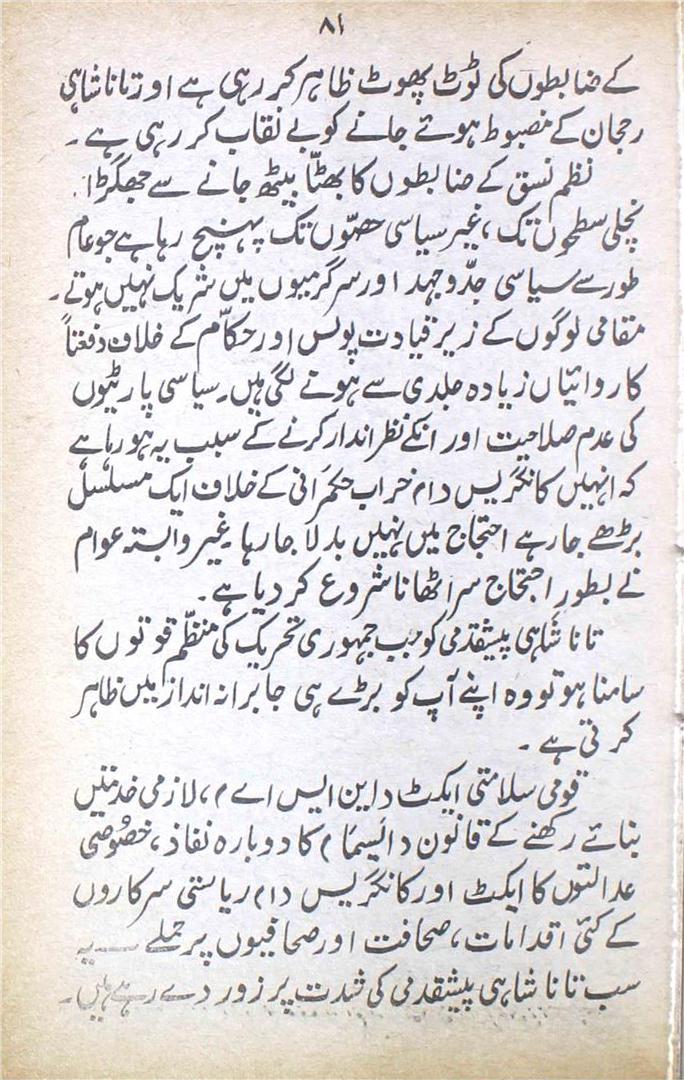 ۸۱
کے ضابطوں کی ٹوٹ پھوٹ ظاہر کر رہی ہے اور تاناشاہی
رجحان کے مضبوط ہوتے جانے کو بے نقاب کر رہی ہے۔
نظم نسق کے ضابطوں کا بھٹّا بیٹھ جانے سے جھگڑا
نچلی سطحوں تک، غیر سیاسی حصّوں تک پہنچ رہا ہے جو عام
طور سے سیاسی جدّوجہد اور سرگرمیوں میں شریک نہیں ہوتے۔
مقامی لوگوں کے زیر قیادت پولس اور حکاّم کے خلاف دفعتاً
کاروائیاں زیادہ جلدی سے ہونے لگی ہیں۔ سیاسی پارٹیوں
کی عدم صلاحیت اور انکے نظر انداز کرنے کے سبب یہ ہو رہا ہے
کہ انہیں کانگریس (ا) خراب حکمرانی کے خلاف ایک مسلسل
بڑھے جارہے احتجاج میں نہیں بدلا جارہا۔ غیر وابستہ عوام
نے بطور احتجاج سر اٹھانا شروع کر دیا ہے۔
تاناشاہی پیشقدمی کو جب جمہوری تحریک کی منظّم قوتوں کا
سامنا ہو تو وہ اپنے آپ کو بڑے ہی جابرانہ انداز میں ظاہر
کرتی ہے۔
قومی سلامتی ایکٹ (این ایس اے)، لازمی خدمتیں
بنائے رکھنے کے قانون (ایسما) کا دوبارہ نفاذ، خصُوصی
عدالتوں کا ایکٹ اور کانگریس (ا) ریاستی سرکاروں
کے کئی اقدامات، صحافت اور صحافیوں پر حملے ــ یہ
سب تاناشاہی پیشقدمی کی شدت پر زور دے رہے ہیں۔